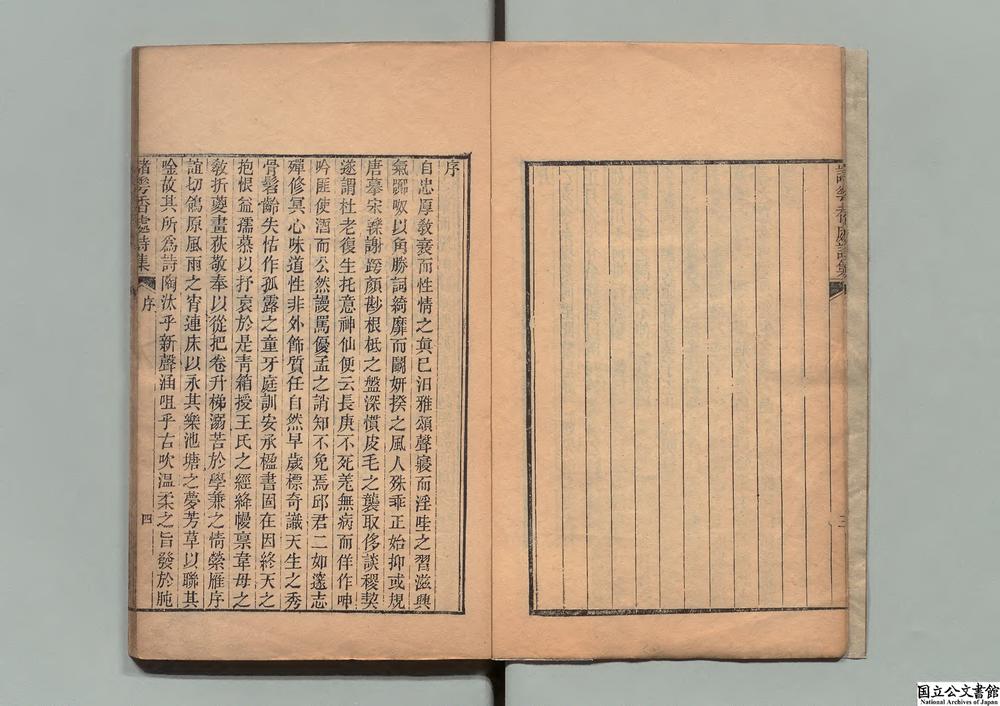 序
自忠厚教衰而性情之眞已汨雅頌聲寢而淫哇之習滋興
氣嘂呶以角勝詞綺靡而鬭妍揆之風人殊乖正始抑或規
唐摹宋轢謝跨顏尠根柢之盤深慣皮毛之襲取侈談稷契
遂謂杜老復生托意神仙便云長庚不死羌無病而佯作呻
吟匪使酒而公然謾罵優孟之誚知不免焉邱君二如邃志
殫修冥心味道性非外飾質任自然早歲標奇識天生之秀
骨髫齡失怙作孤露之童牙庭訓安承楹書固在因終天之
抱恨益孺慕以抒哀於是青箱授王氏之經絳幔稟韋母之
敎折葼畫荻敬奉以從把卷升梯溺苦於學兼之情縈雁序
誼切鴒原風雨之宵連床以永其樂池塘之夢芳草以聯其
唫故其所爲詩陶汰乎新聲涵咀乎古吹温柔之旨發於肫
香處詩集
序
四
三
国立公文書館
National Archives of Japan